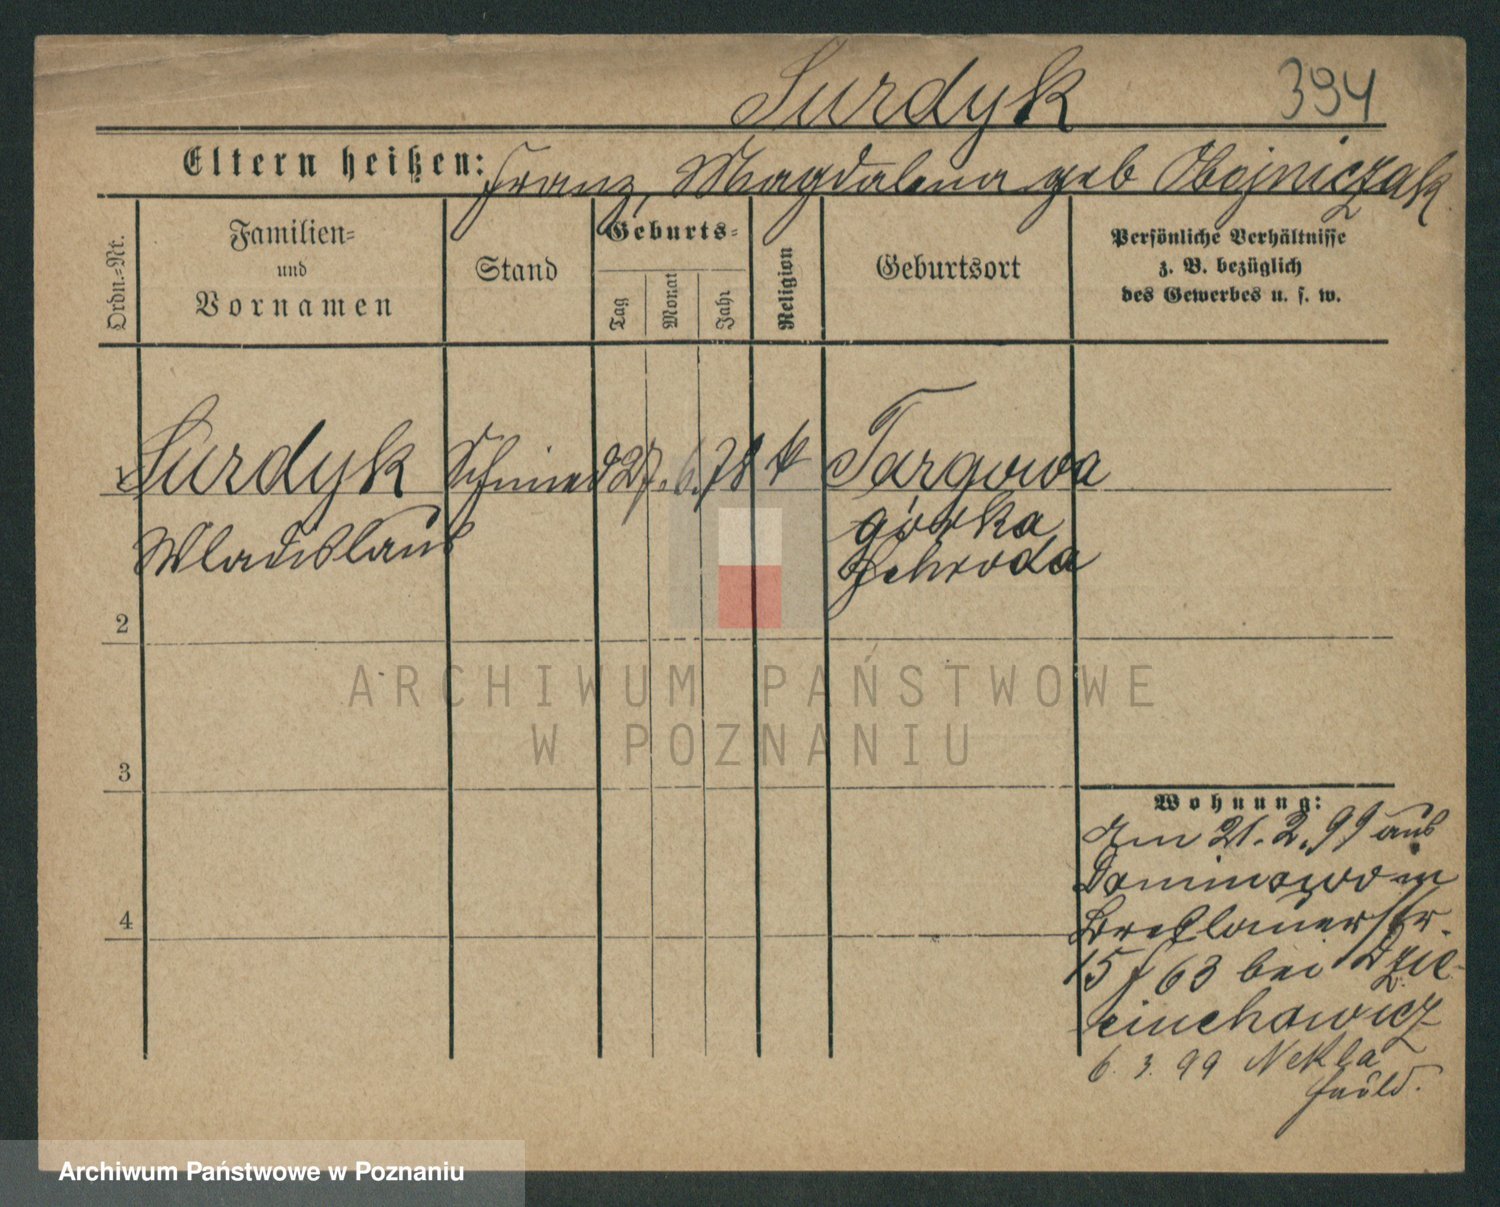 Surdyk 394
Eltern heißen: Franz, Magdalena geb Obojniczak
Ordn.-Nr.
Familien-
und
Vornamen
Stand
Geburts-
Tag
Monat
Jahr
Religion
Geburtsort
Persönliche Verhältnisse
z. B. bezüglich
des Gewerbes u. s. w.
Surdyk Schmied 27. 6. 78 k Targowa
górka
Wladislaus
Schroda
2
3
4
ARCHIWUM PAŃSTWOWE
W POZNANIU
Wohnung:
Am 21. 2. 99 aus
Dominowo in
Breslauerstr.
15 f 63 bei Dzie-
cinchowicz
6. 3. 99 Nekla
Archiwum Państwowe w Poznaniu